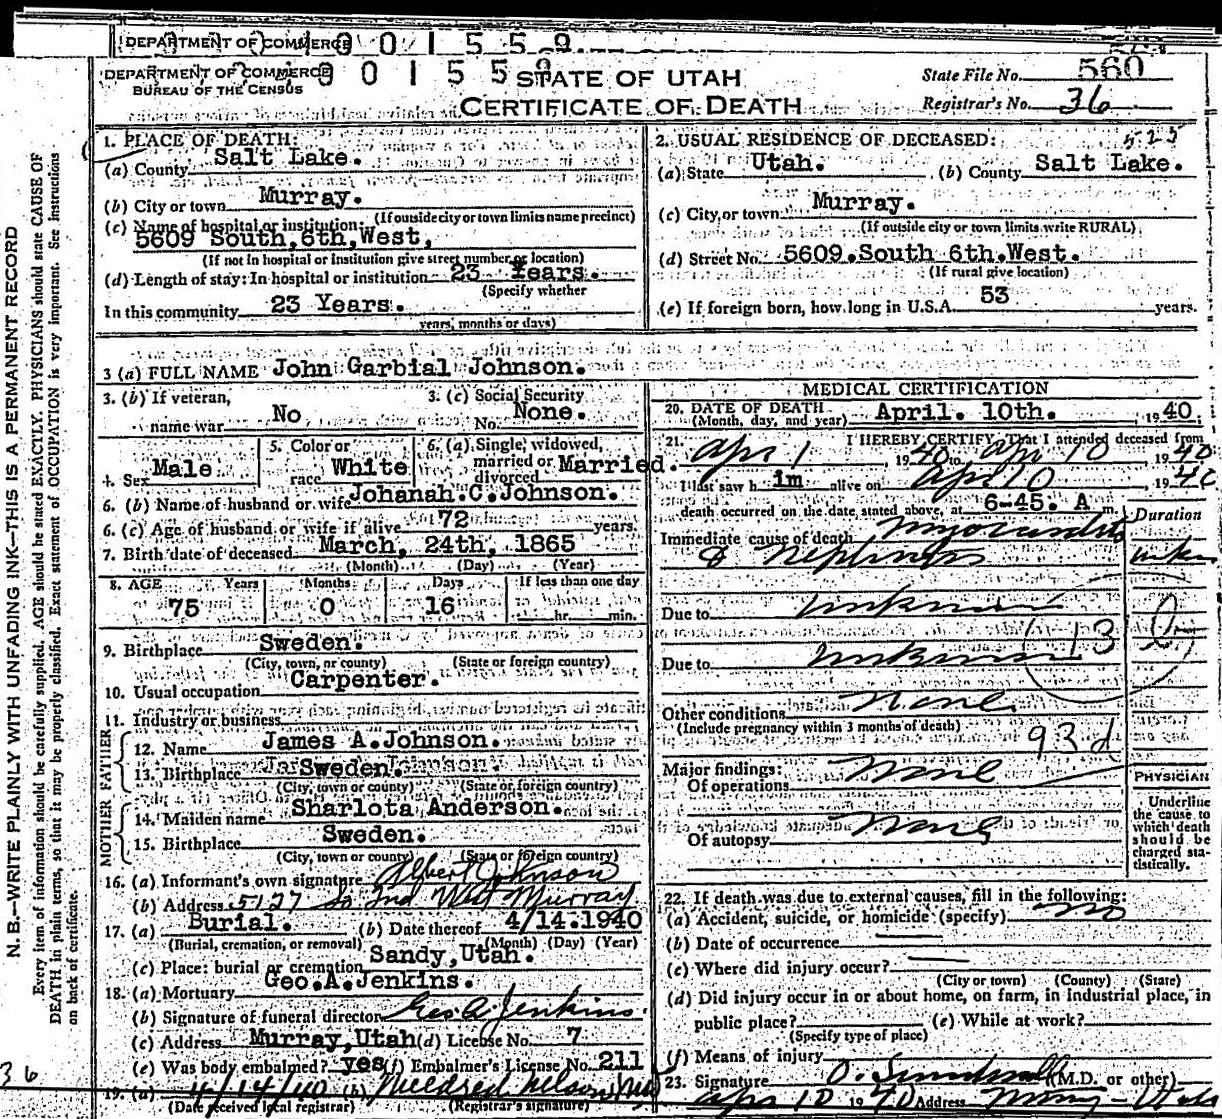 DEPARTMENT OF COMMERCE 0 0 1 5 5 9
DEPARTMENT OF COMMERCE 0 0 1 5 5 9
BUREAU OF THE CENSUS
STATE OF UTAH
CERTIFICATE OF DEATH
State File No. 560
Registrar's No. 36
N. B.—WRITE PLAINLY WITH UNFADING INK—THIS IS A PERMANENT RECORD
Every item of information should be carefully supplied. AGE should be stated EXACTLY. PHYSICIANS should state CAUSE OF
DEATH in plain terms, so that it may be properly classified. Exact statement of OCCUPATION is very important. See instructions
on back of certificate.
1. PLACE OF DEATH:
(a) County Salt Lake.
(b) City or town Murray.
(If outside city or town limits name precinct)
(c) Name of hospital or institution:
5609 South, 6th, West,
(If not in hospital or institution give street number or location)
(d) Length of stay: In hospital or institution 23 Years.
(Specify whether
In this community 23 Years.
years, months or days)
2. USUAL RESIDENCE OF DECEASED: 525
(a) State Utah. (b) County Salt Lake.
(c) City or town Murray.
(If outside city or town limits write RURAL)
(d) Street No. 5609.South 6th.West.
(If rural give location)
(e) If foreign born, how long in U.S.A. 53 years.
3 (a) FULL NAME John Garbial Johnson.
3. (b) If veteran, name war No
3. (c) Social Security No. None.
4. Sex Male
5. Color or race White
6. (a) Single, widowed, married or divorced Married.
6. (b) Name of husband or wife Johanah.C.Johnson.
6. (c) Age of husband or wife if alive 72 years.
7. Birth date of deceased March, 24th, 1865
(Month) (Day) (Year)
8. AGE Years Months Days If less than one day
75 0 16 hr. min.
9. Birthplace Sweden.
(City, town, or county) (State or foreign country)
10. Usual occupation Carpenter.
11. Industry or business
FATHER
12. Name James A.Johnson.
13. Birthplace Sweden.
(City, town or county) (State or foreign country)
MOTHER
14. Maiden name Sharlota Anderson.
15. Birthplace Sweden.
(City, town or county) (State or foreign country)
16. (a) Informant's own signature Albert Johnson
(b) Address 5127 So 2nd West Murray
17. (a) Burial. (b) Date thereof 4/14.1940
(Burial, cremation, or removal) (Month) (Day) (Year)
(c) Place: burial or cremation Sandy,Utah.
18. (a) Mortuary Geo.A.Jenkins.
(b) Signature of funeral director Geo. A. Jenkins.
(c) Address Murray,Utah (d) License No. 7
(e) Was body embalmed? yes (f) Embalmer's License No. 211
19. (a) 4/14/40 (b) Mildred Nelson
(Date received local registrar) (Registrar's signature)
36
MEDICAL CERTIFICATION
20. DATE OF DEATH April. 10th. 1940.
(Month, day, and year)
21. I HEREBY CERTIFY, That I attended deceased from
Apr 1 1940 to Apr 10 1940
I last saw h im alive on Apr 10 1940
death occurred on the date stated above, at 6-45. A m.
Duration
Immediate cause of death Myocarditis
& Nephritis
Due to Unknown
Due to Unknown
13
Other conditions None
(Include pregnancy within 3 months of death)
93d
Major findings:
Of operations None
Of autopsy None
PHYSICIAN
Underline
the cause to
which death
should be
charged sta-
tistically.
22. If death was due to external causes, fill in the following:
(a) Accident, suicide, or homicide (specify) no
(b) Date of occurrence
(c) Where did injury occur?
(City or town) (County) (State)
(d) Did injury occur in or about home, on farm, in industrial place, in
public place? (e) While at work?
(Specify type of place)
(f) Means of injury
23. Signature O. Sundwall (M.D. or other)
Apr 10 1940 Address Murray - Utah